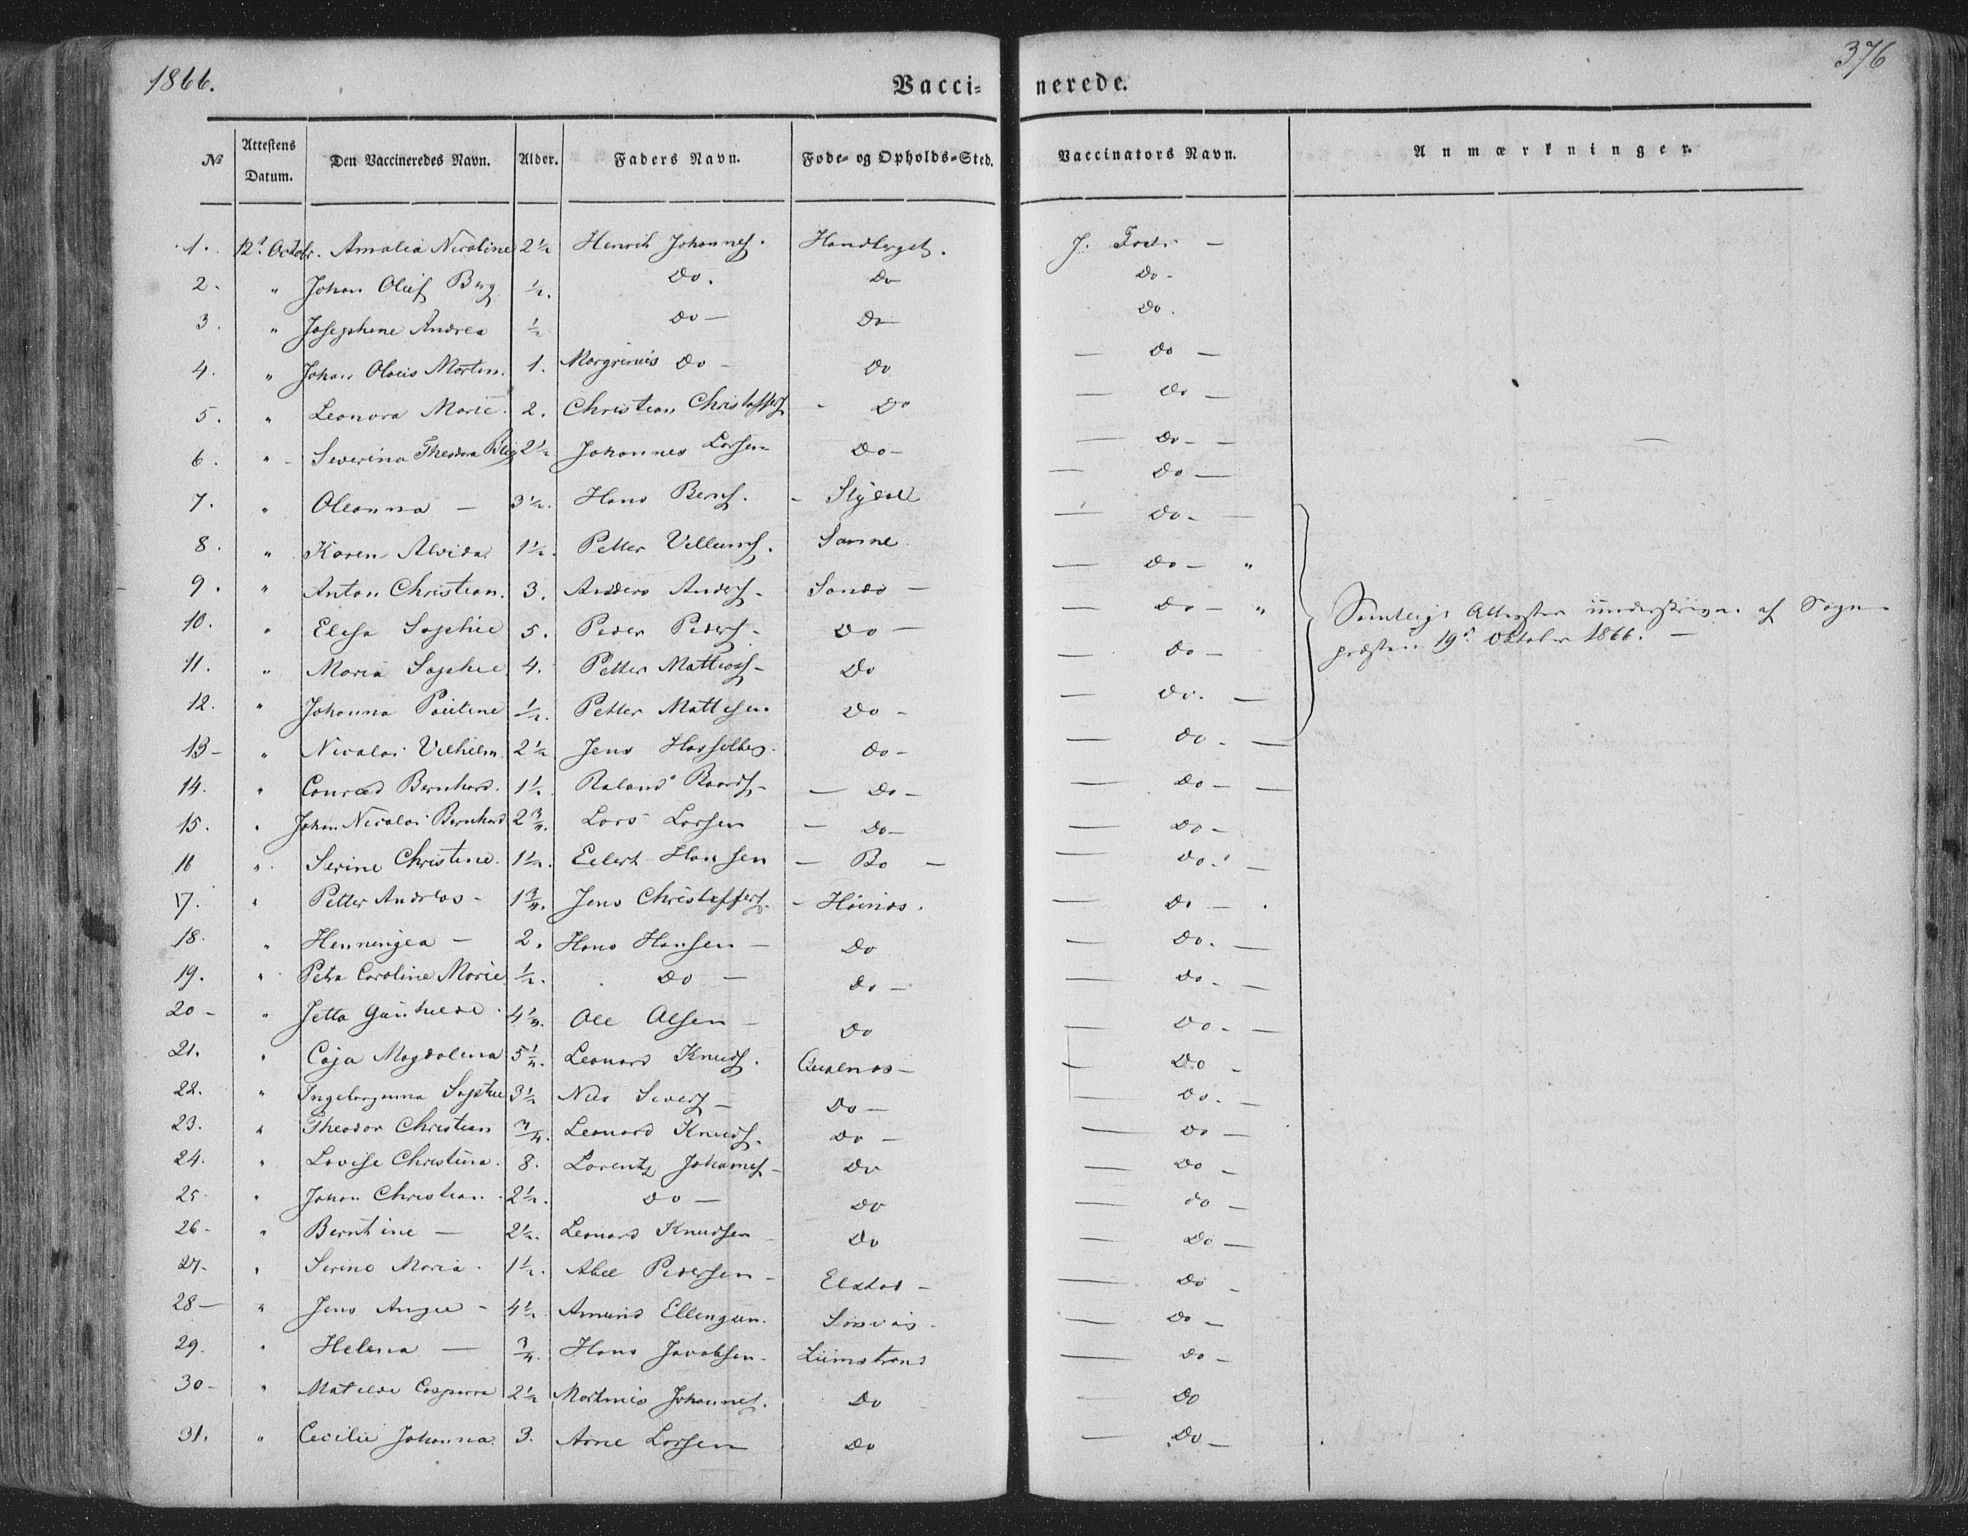 1866.
Vacci-nerede.
376
No
Attestens Datum.
Den Vaccineredes Navn.
Alder.
Faders Navn.
Føde- og Opholds-Sted.
Vaccinators Navn.
Anmærkninger.
1. 12t Octobr. Amalia Nicoline 2 1/2 Henrik Johannes. Handberget. J. —
2. " Johan Oluf Berg 1/2. Do. Do Do -
3. " Josephine Andrea 1/2 Do — Do — Do.
4. " Johan Olaus Morten. 1. Do - Do — Do —
5. " Leonora Marie. 2. Christian Christoffers - Do — Do —
6. " - Severina Theodora 2 1/2 Johannes Larsen Do - — Do - -
7. " Oleanna — 3 1/2. Hans Bens. - — Do —
8. " Karen Alvida. 1 1/2. Petter Villums. Sanne — Do - —
9. " Anton Christian. 3. Anders Anders. Sando — — Do - "
10. " Elisa Sophie 5. Peder Peders. Do — — Do - "
11. " Maria Sophie 4. Petter Mattias - Do — Do -
12. " Johanna Pauline 1/2. Petter Mattisen Do - — Do. —
13 - " Nicolai Vilhelm. 2 1/2 Jens Hasselberg. Do - — Do. —
14. " Conrad Bernhard. 1 1/2 Roland - — Do — — Do - —
15. " Johan Nicolai Bernhard 2 3/4. Lars Larsen — Do — — Do -
16 " Serine Christine. 1 1/2. Eilert Hansen — Bo — — Do. —
17. " Petter Andreas - 1 3/4. Jens Christoffers. - Høinæs. — Do —.
18. " Henningea — 2. Hans Hansen — Do — Do. —
19. " Petra Caroline Marie 1/2. Do — Do — — Do - —
20 - " Jetta Gunhilde. 4 1/4. Ole Olsen — Do — Do - —
21. " Caja Magdalena 5 1/4. Leonard Knuds. Qualnæs — — Do -
22. " Ingeborganna Sophie 3 1/2 Nils Sivers — Do — — Do. —
23. " Theodor Christian 3/4. Leonard Knuds. Do — — Do —
24. " Lovise Christina. 8. Lorentz Johannes - Do — Do -
25 " Johan Christian. 2 1/2. Do — Do — Do -
26 - " Berntine — 2 1/2. Leonard Knudsen Do — Do —
27 - " Serine Maria. 1 1/2. Abel Pedersen - Elstad — — Do -
28 — " Jens Angel - 4 1/2. Amund Ellingsen. — Do —
29. " Helena — 3/4. Hans Jacobsen. Liimstrand — Do -
30 - " Matilde Casparra 2 1/2 Martinus Johannes. Do — Do
31. " Cecilie Johanna. 3. Arne Larsen Do — Do —
Samtlige Attester underskrevne af Sogne
præsten 19d Oktober 1866. —